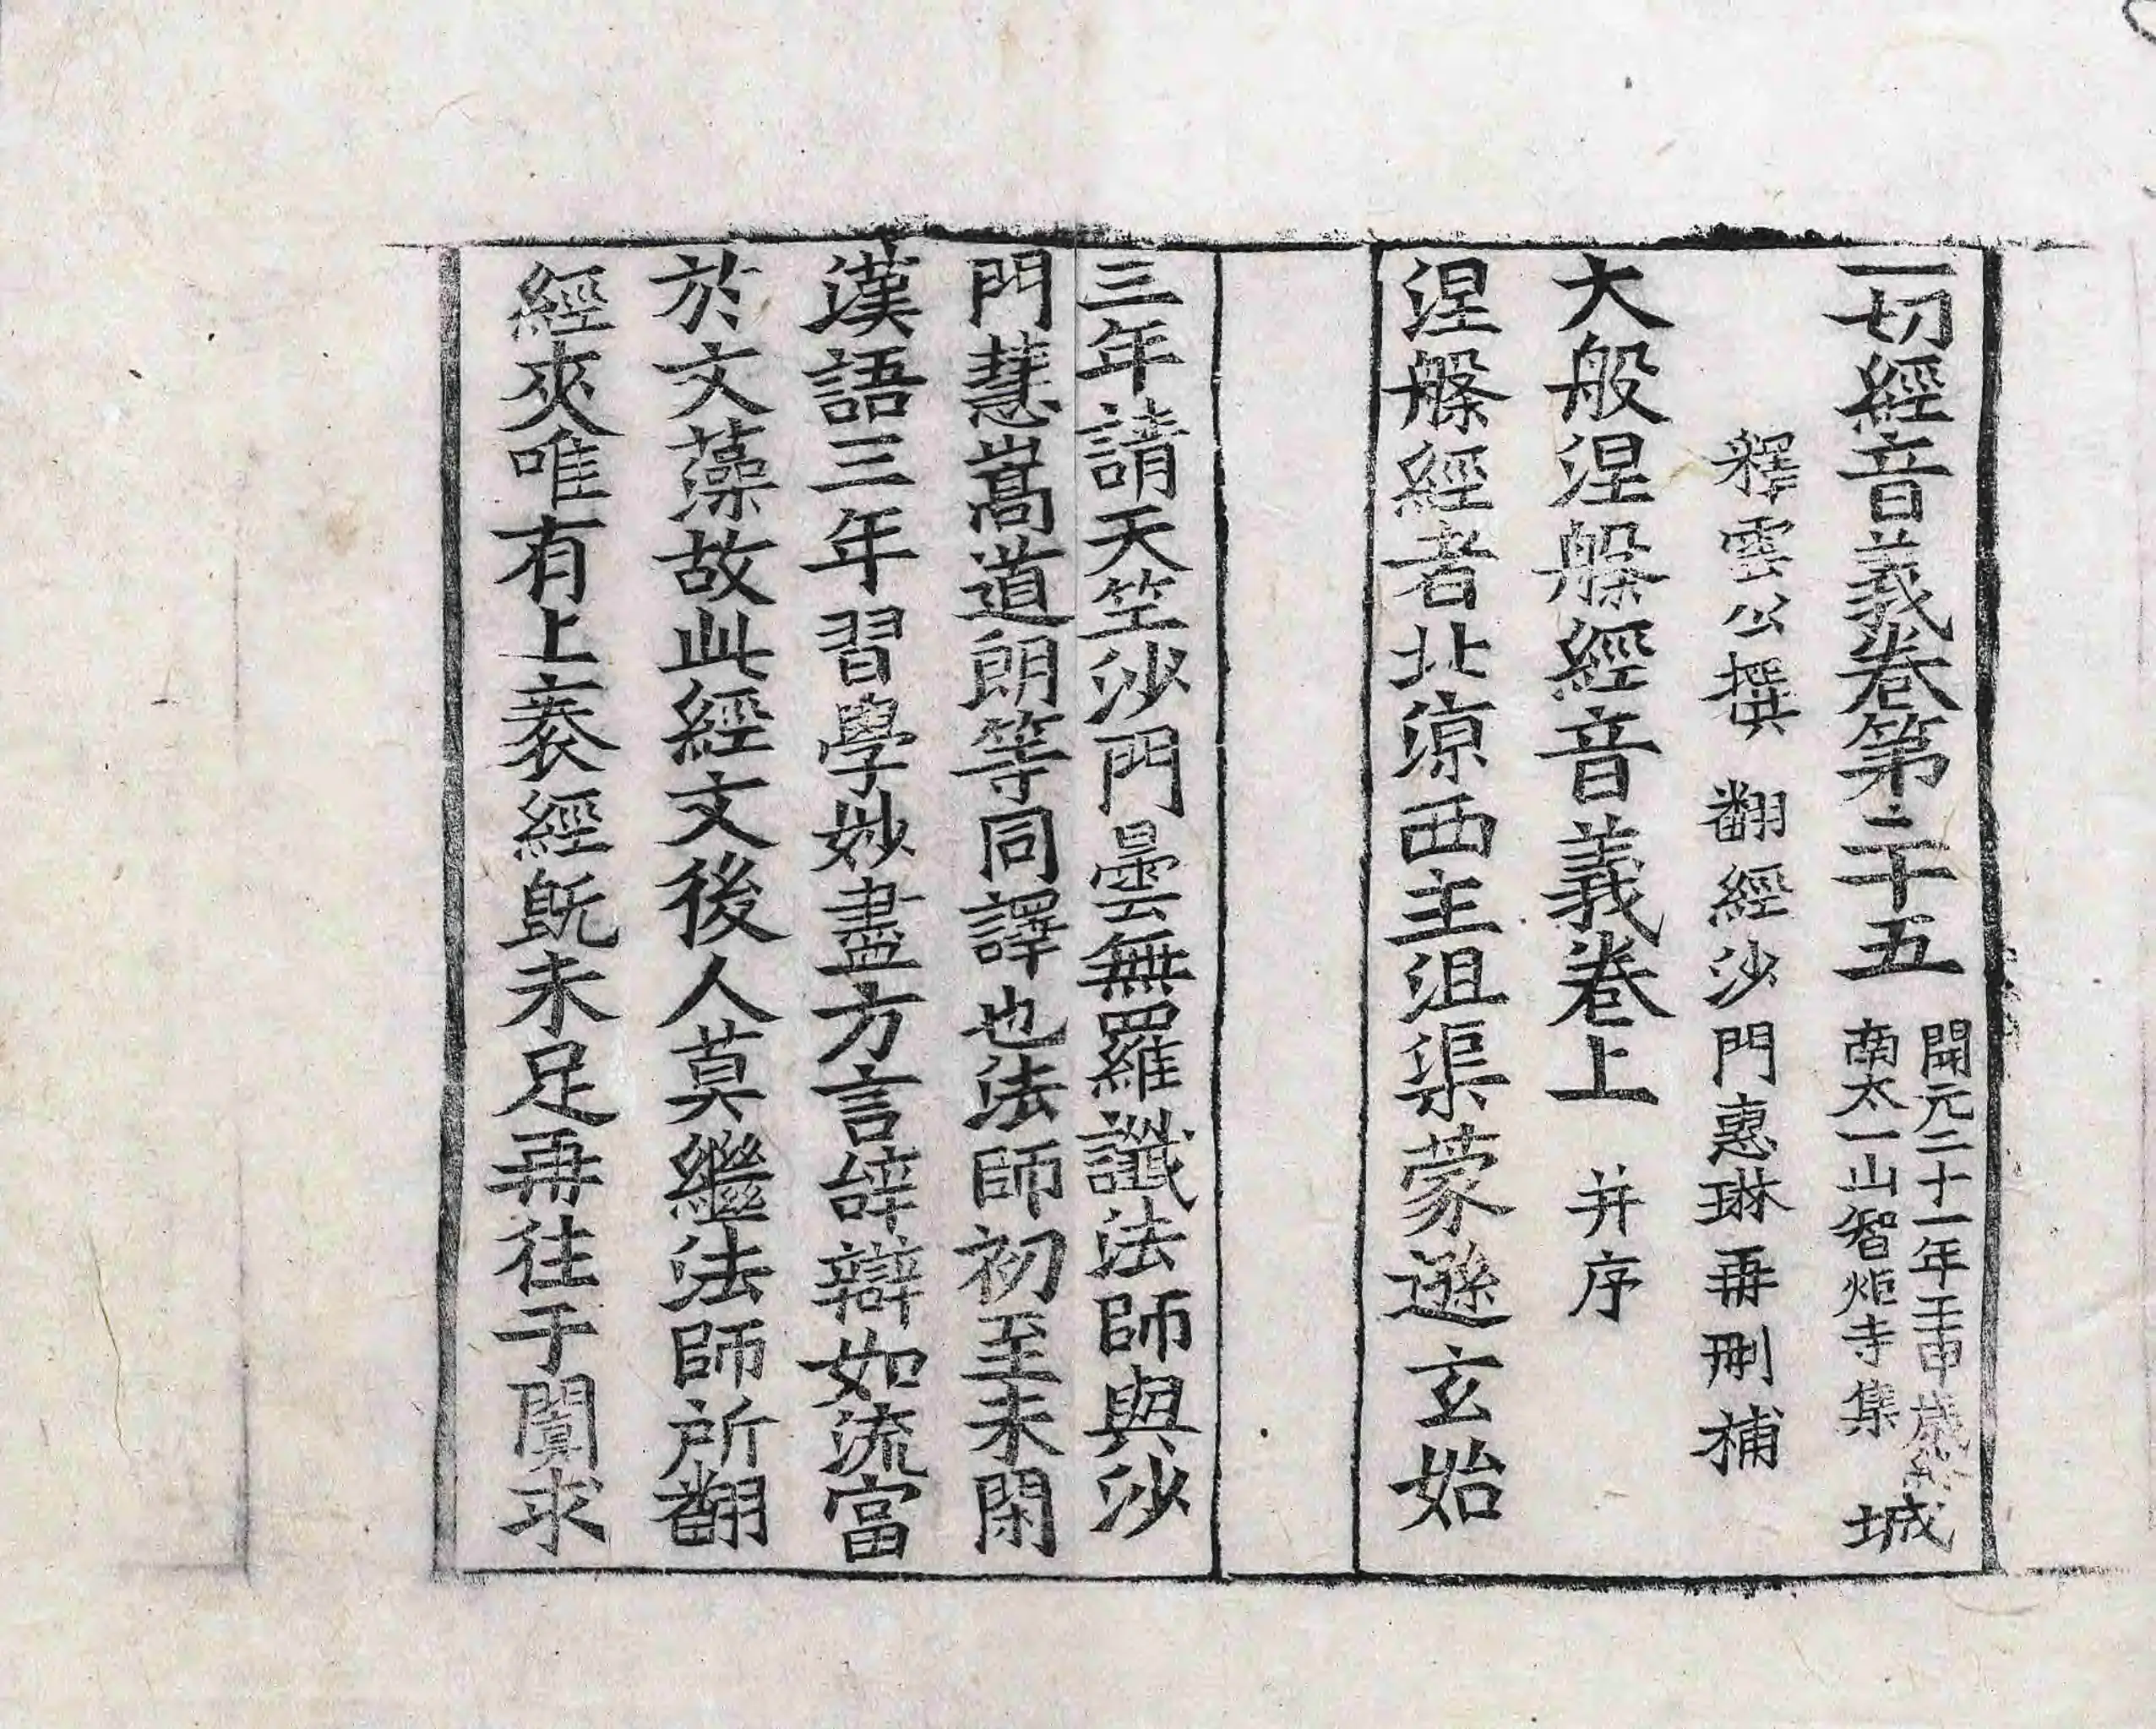 一切經音義卷第二十五 開元二十一年壬申歲終南太一山智炬寺集 城
釋雲公撰 翻經沙門惠琳再刪補
大般涅槃經音義卷上 并序
涅槃經者北涼西主沮渠蒙遜玄始
三年請天竺沙門曇無羅讖法師與沙
門慧嵩道朗等同譯也法師初至未閑
漢語三年習學妙盡方言辭辯如流富
於文藻故此經文後人莫繼法師所翻
經夾唯有上袠經旣未足再往于闐求